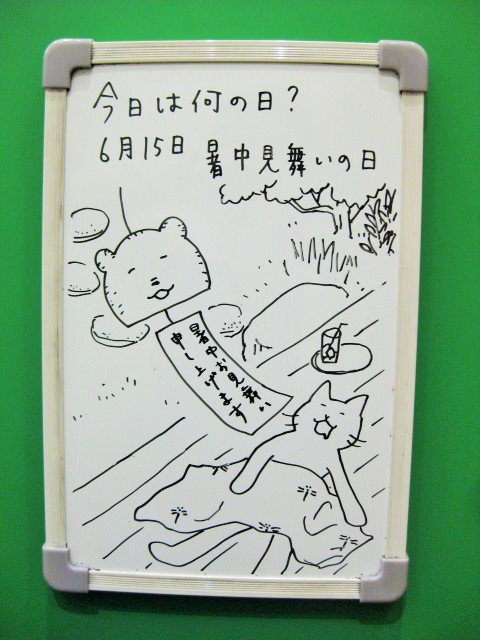 今日は何の日？
6月15日 暑中見舞いの日
暑中お見舞い
申し上げます